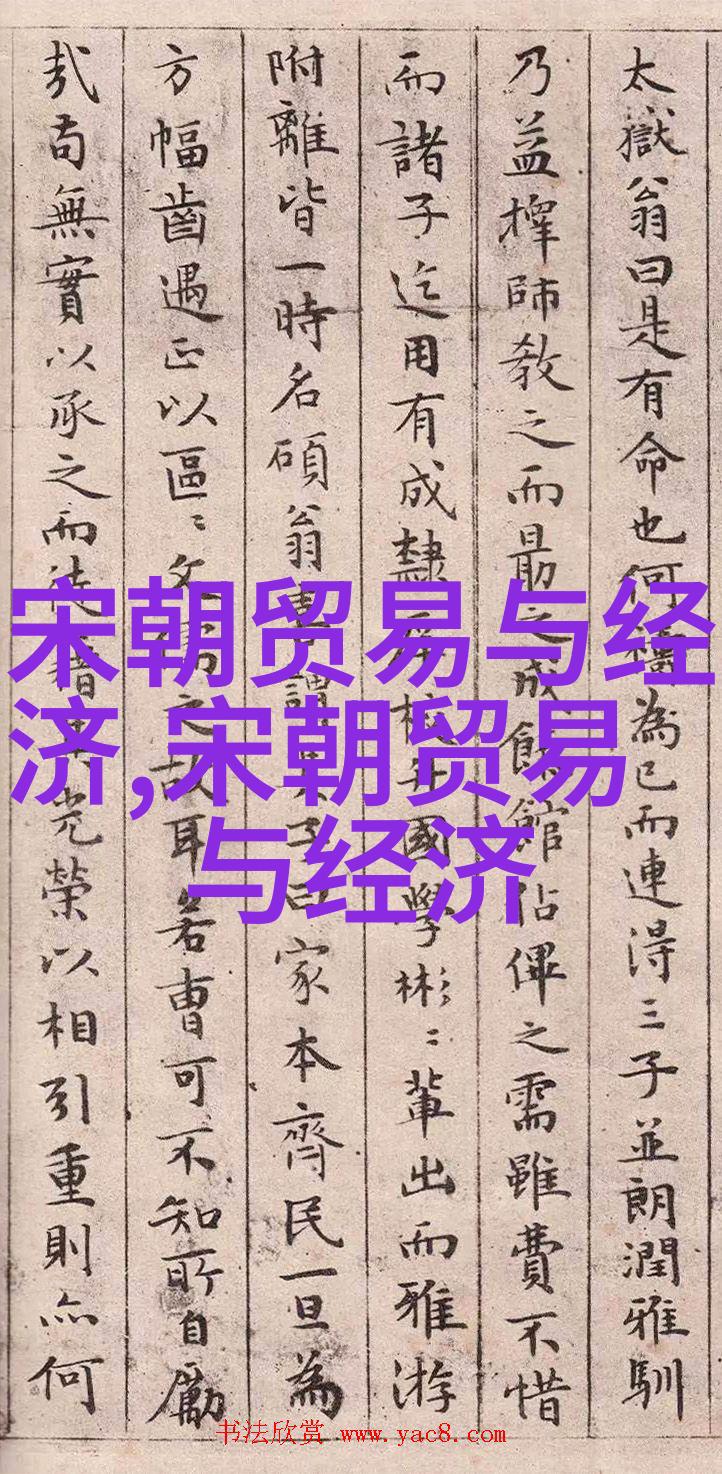 太嶽翁曰是有命也何為已而連得三子並朗潤雅馴
乃益擇師教之而朂之成館佔俾之需雖費不惜
而諸子迄用有成隸校國學彬〻輩出而雅游
附離皆一時名碩翁謂子曰家本齊民一旦為
方幅齒遇正以區〻文之故耳若曹可不知所自勵
哉苟無實以承之而徒藉光榮以相引重則亦何
宋朝贸易与经
济,宋朝贸易
与经济
书法欣赏 www.yac8.com